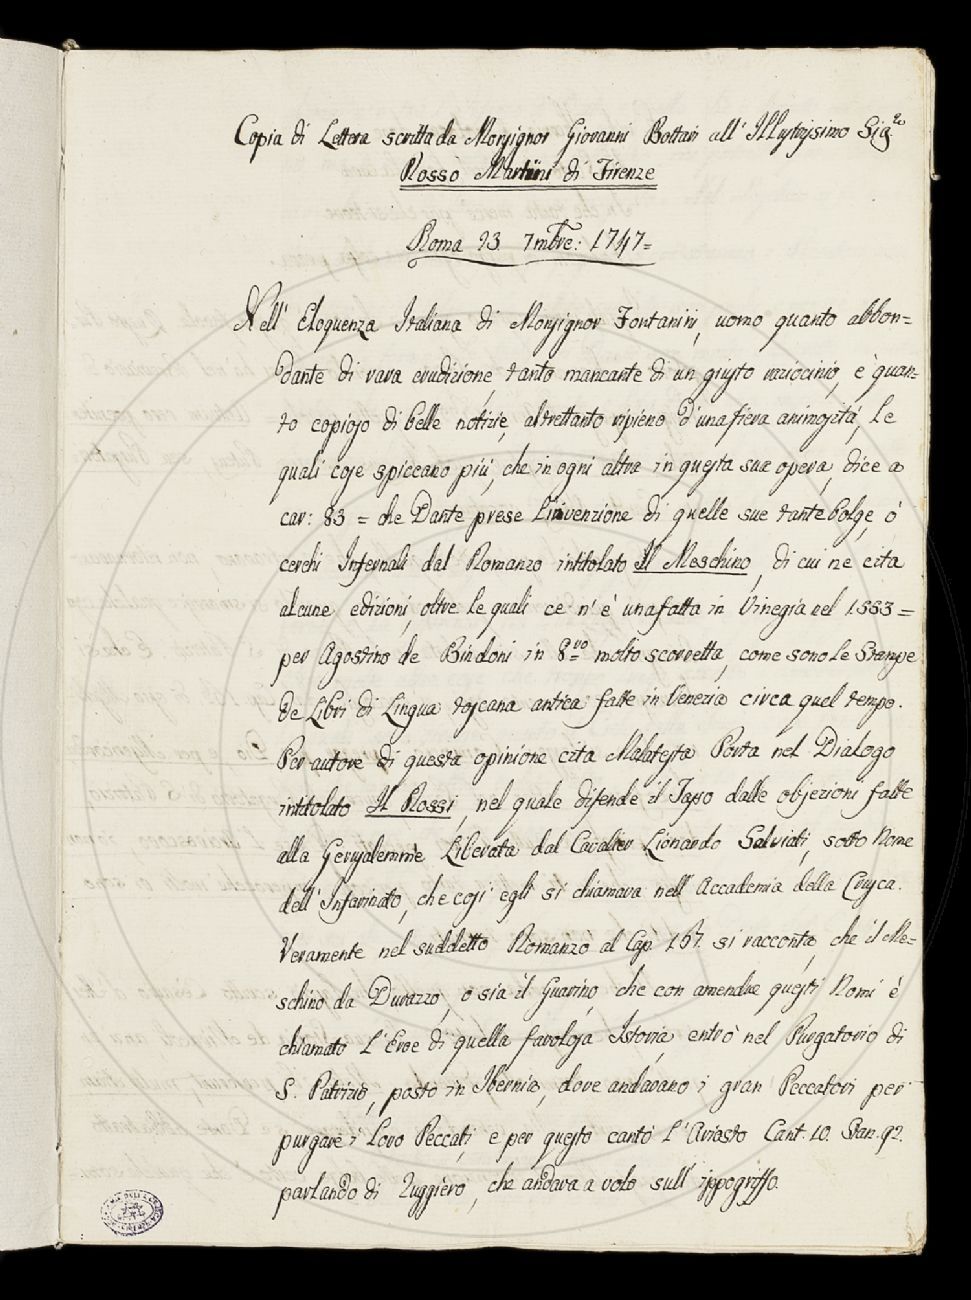 Copia di Lettera scritta da Monsignor Giovanni Bottari all' Illustrissimo Sig.re
Rosso Martini di Firenze
Roma 23. 7mbre: 1747=
Nell' Eloquenza Italiana di Monsignor Fontanini, uomo quanto abbon=
dante di rara erudizione, tanto mancante di un giusto raziocinio, e quan=
to copioso di belle notizie, altrettanto ripieno d'una fiera animosità, Le
quali cose spiccano più, che in ogni altra in questa sua opera, dice a
car: 83 = che Dante prese l'invenzione di quelle sue tante bolge, ò
cerchi Infernali dal Romanzo intitolato Il Meschino, di cui ne cita
alcune edizioni, oltre le quali ce n' è una fatta in Vinegia nel 1553 =
per Agostino de Bindoni in 8.vo molto scorretta, come sono Le Stampe
de Libri di Lingua toscana antica fatte in Venezia circa quel tempo.
Per autore di questa opinione cita Malatesta Porta nel Dialogo
intitolato Il Rossi, nel quale difende il Tasso dalle objezioni fatte
alla Gerusalemme Liberata dal Cavalier Lionardo Salviati, sotto Nome
dell' Infarinato, che così egli si chiamava nell' Accademia della Crusca.
Veramente nel suddetto Romanzo al Cap. 167. si racconta, che il Me=
schino da Durazzo, o sia il Guarino, che con amendue questi Nomi è
chiamato L'Eroe di quella favolosa Istoria, entrò nel Purgatorio di
S. Patrizio, posto in Ibernia, dove andavano i gran Peccatori per
purgare i Loro Peccati, e per questo cantò L'Ariosto Cant. 10. Stan. 92.
parlando di Ruggiero, che andava a volo sull' ippogriffo.